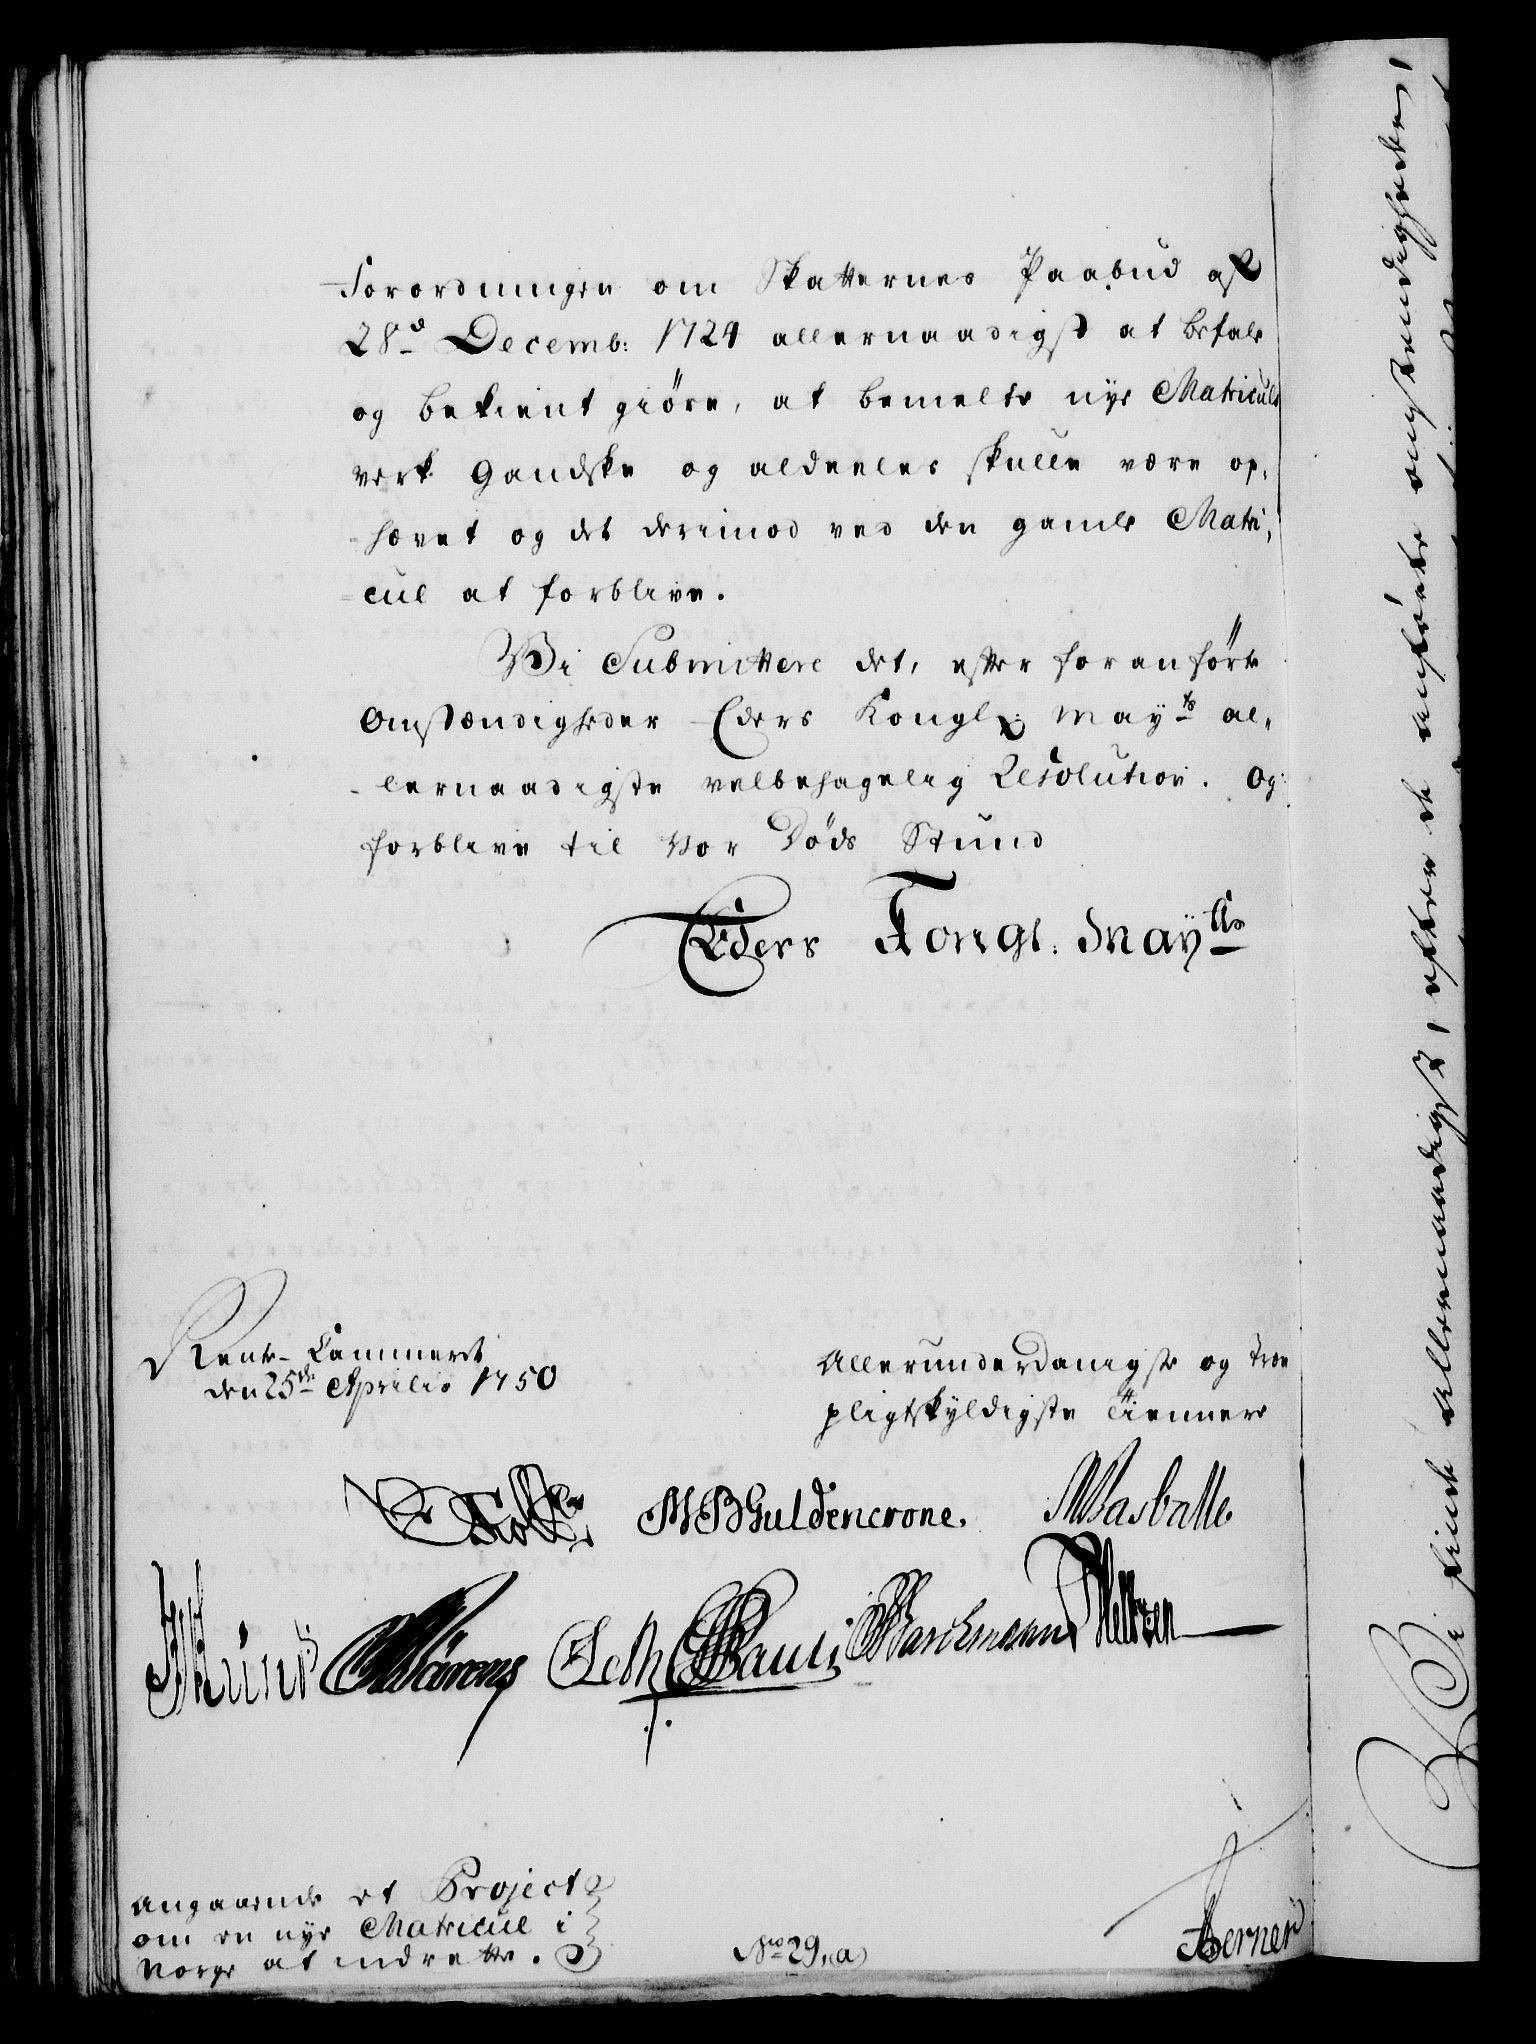 Forordningen om Skatternes Paabud af
28d Decemb: 1724 allernaadigst at befale
og bekient giöre, at bemelte nye Matriculs
verk gandske og aldeeles skulle være op,
hævet og det derimod ved den gamle Matri,
cul at forblive.
Vi Submittere det, efter foranförte
Omstændigheder Eders Kongl: Mayts al,
lernaadigste velbehagelig Resolution. Og
forblive til Vor Döds Stund
Eders Kongl. Mayts
Rente-Cammeret
den 25de Aprilis 1750
Allerunderdanigste og troe
pligtskyldigste tiennere
MBGuldencrone.
Pauli
Barchmann
Angaaende et Project
om en nye Matricul i
Norge at indrette.
No 29,(a)
Berner
Vi finde allernaadigst, efter de anförte omstændigheder,